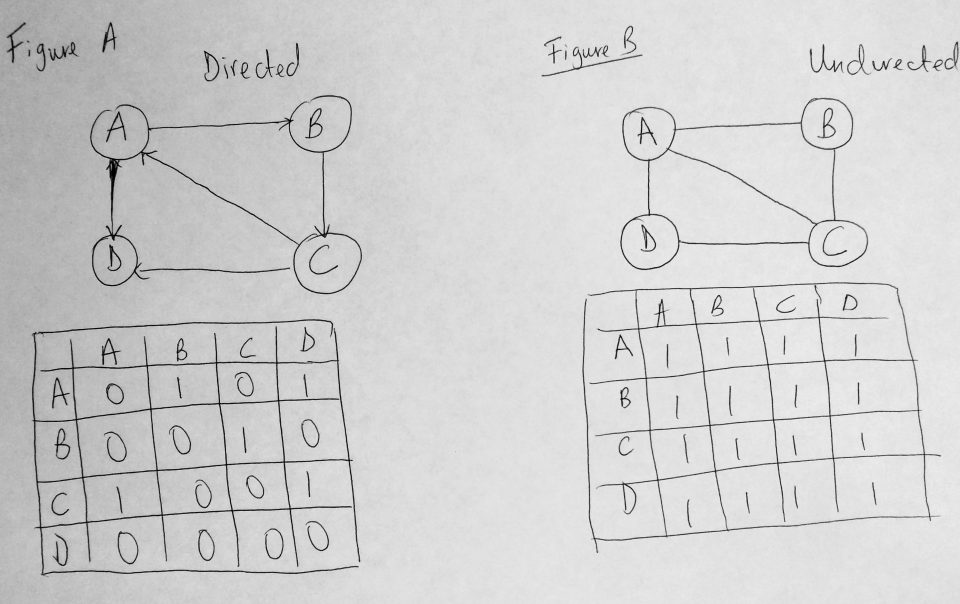 Figure A
Directed
A B
D C
A B C D
A 0 1 0 1
B 0 0 1 0
C 1 0 0 1
D 0 0 0 0
Figure B
Undirected
A B
D C
A B C D
A 1 1 1 1
B 1 1 1 1
C 1 1 1 1
D 1 1 1 1